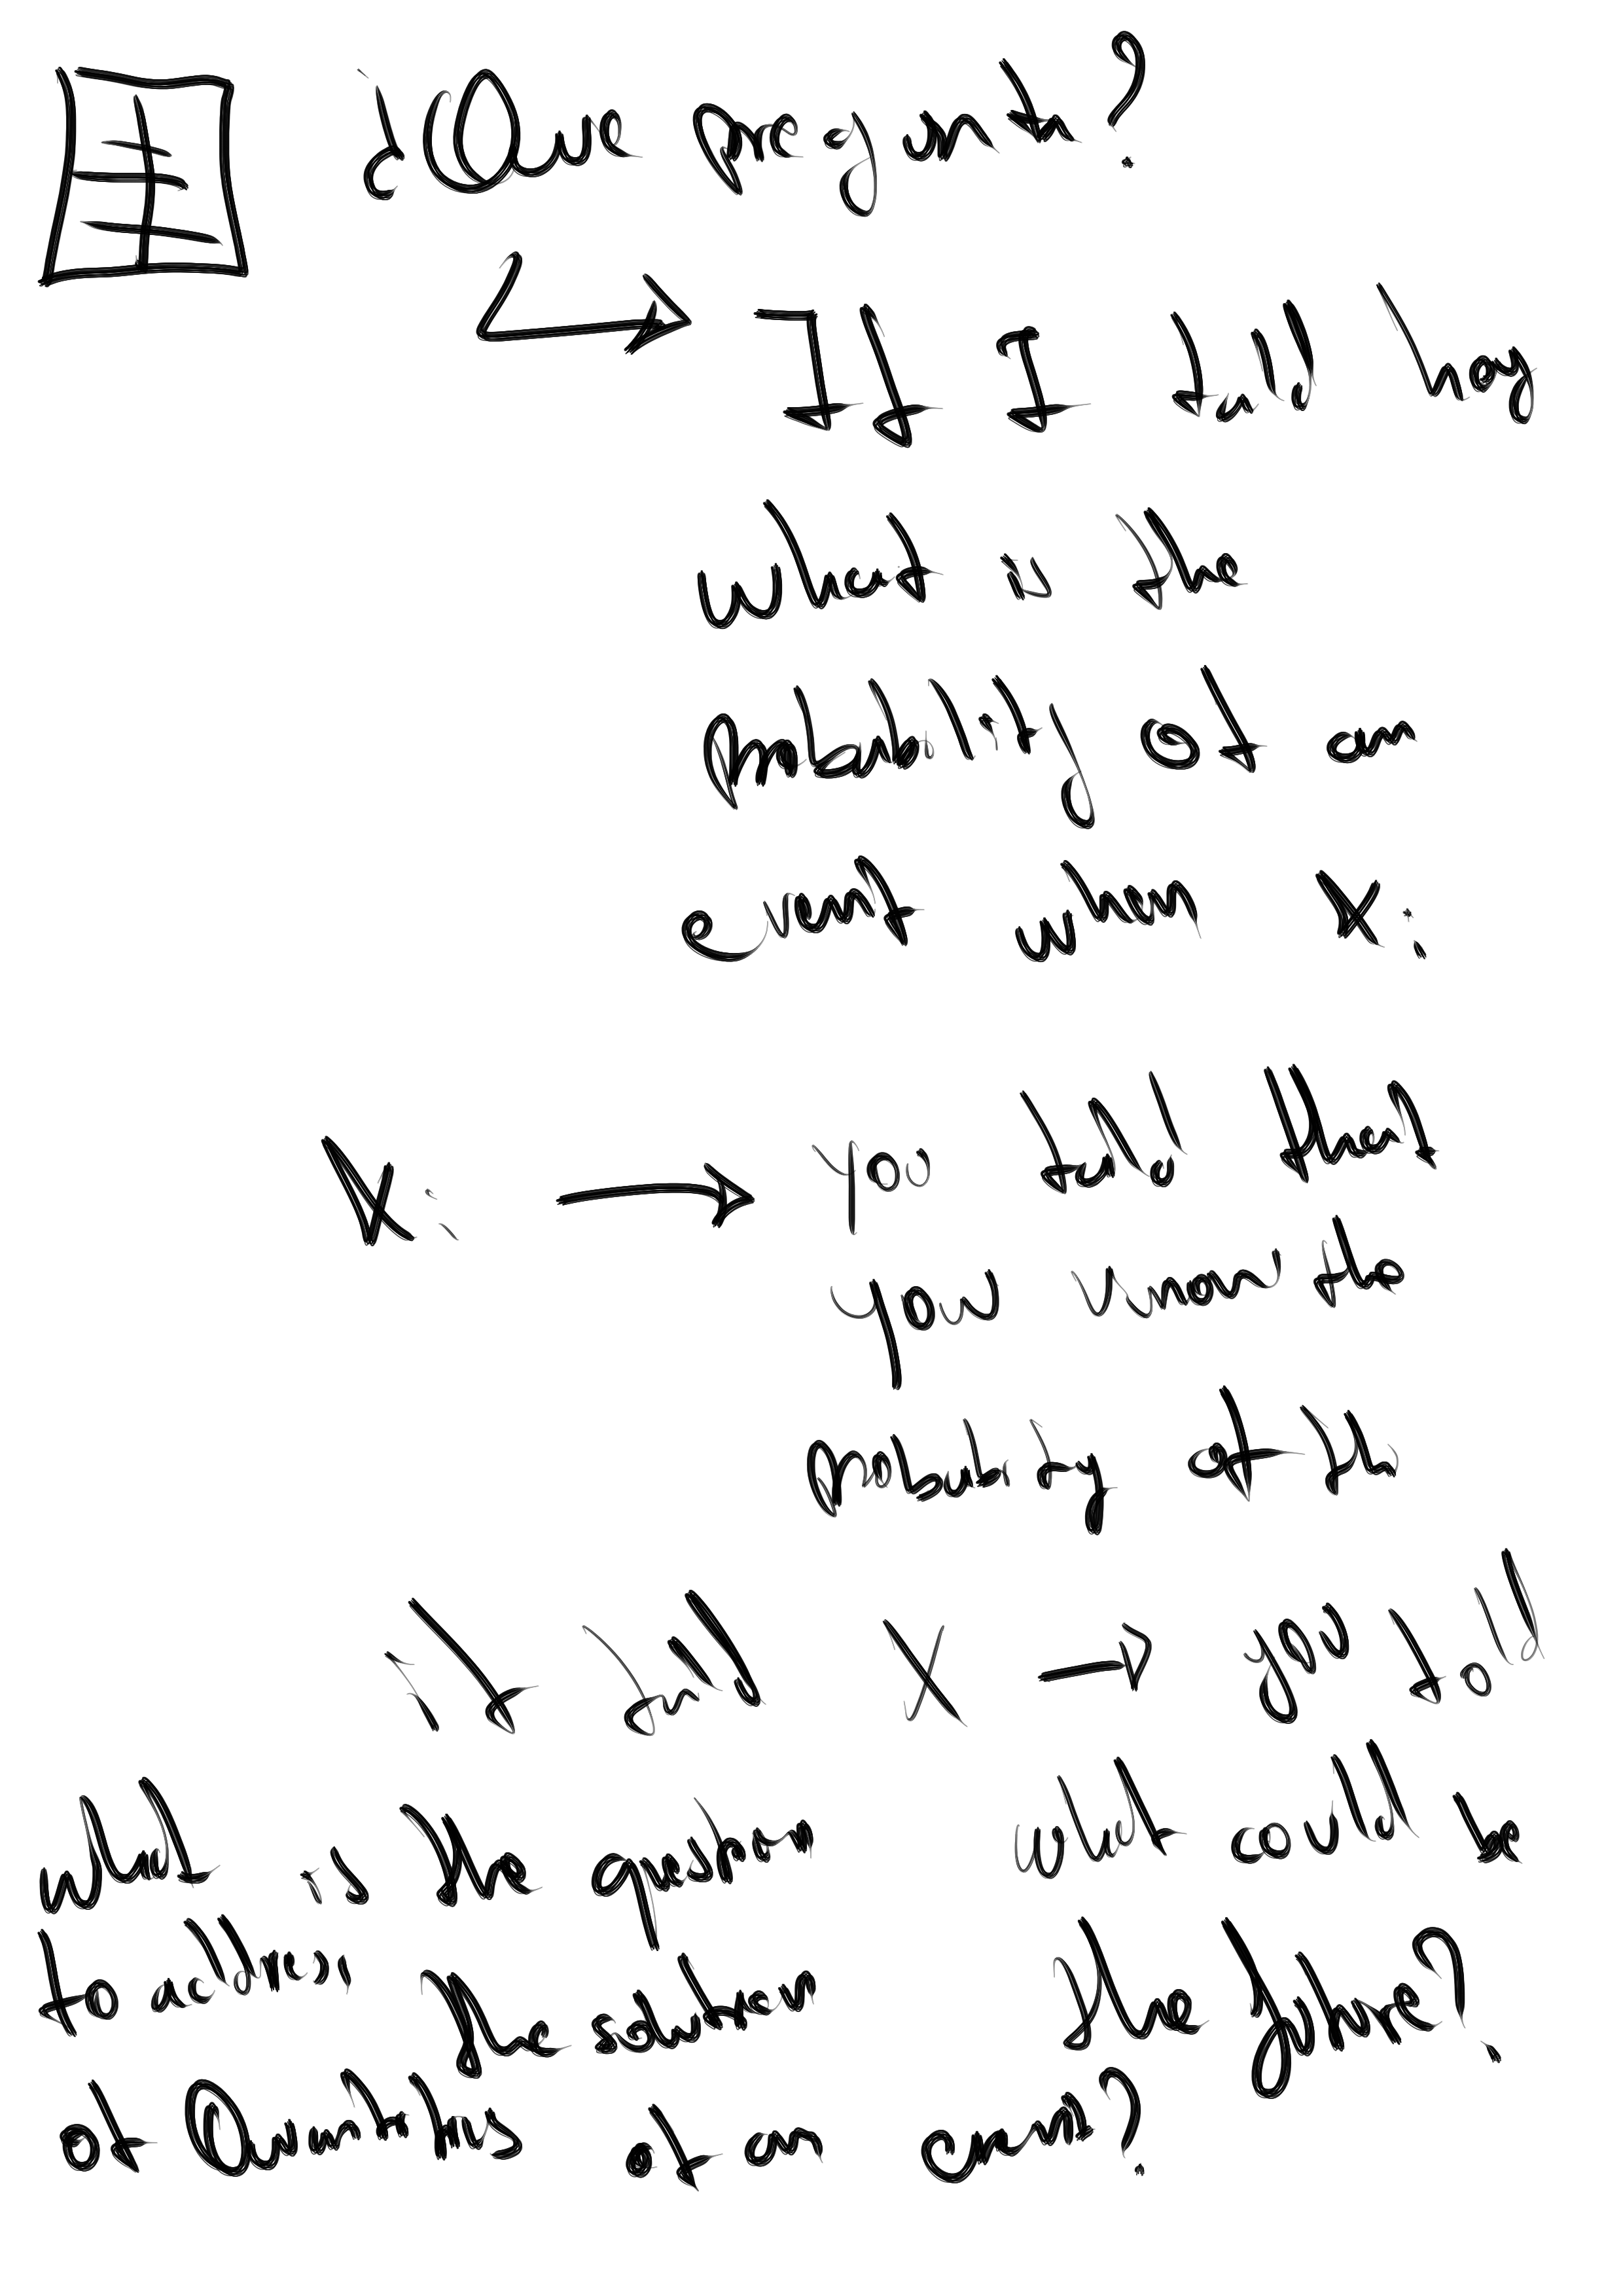 ¿Que pregunta?
If I told hoy
what is the
probability of an
event when X:
X: → you told that
you know the
probability of the
if told X → you told
what is the question what could be
to address the solution the future?
of Quantities of an event?